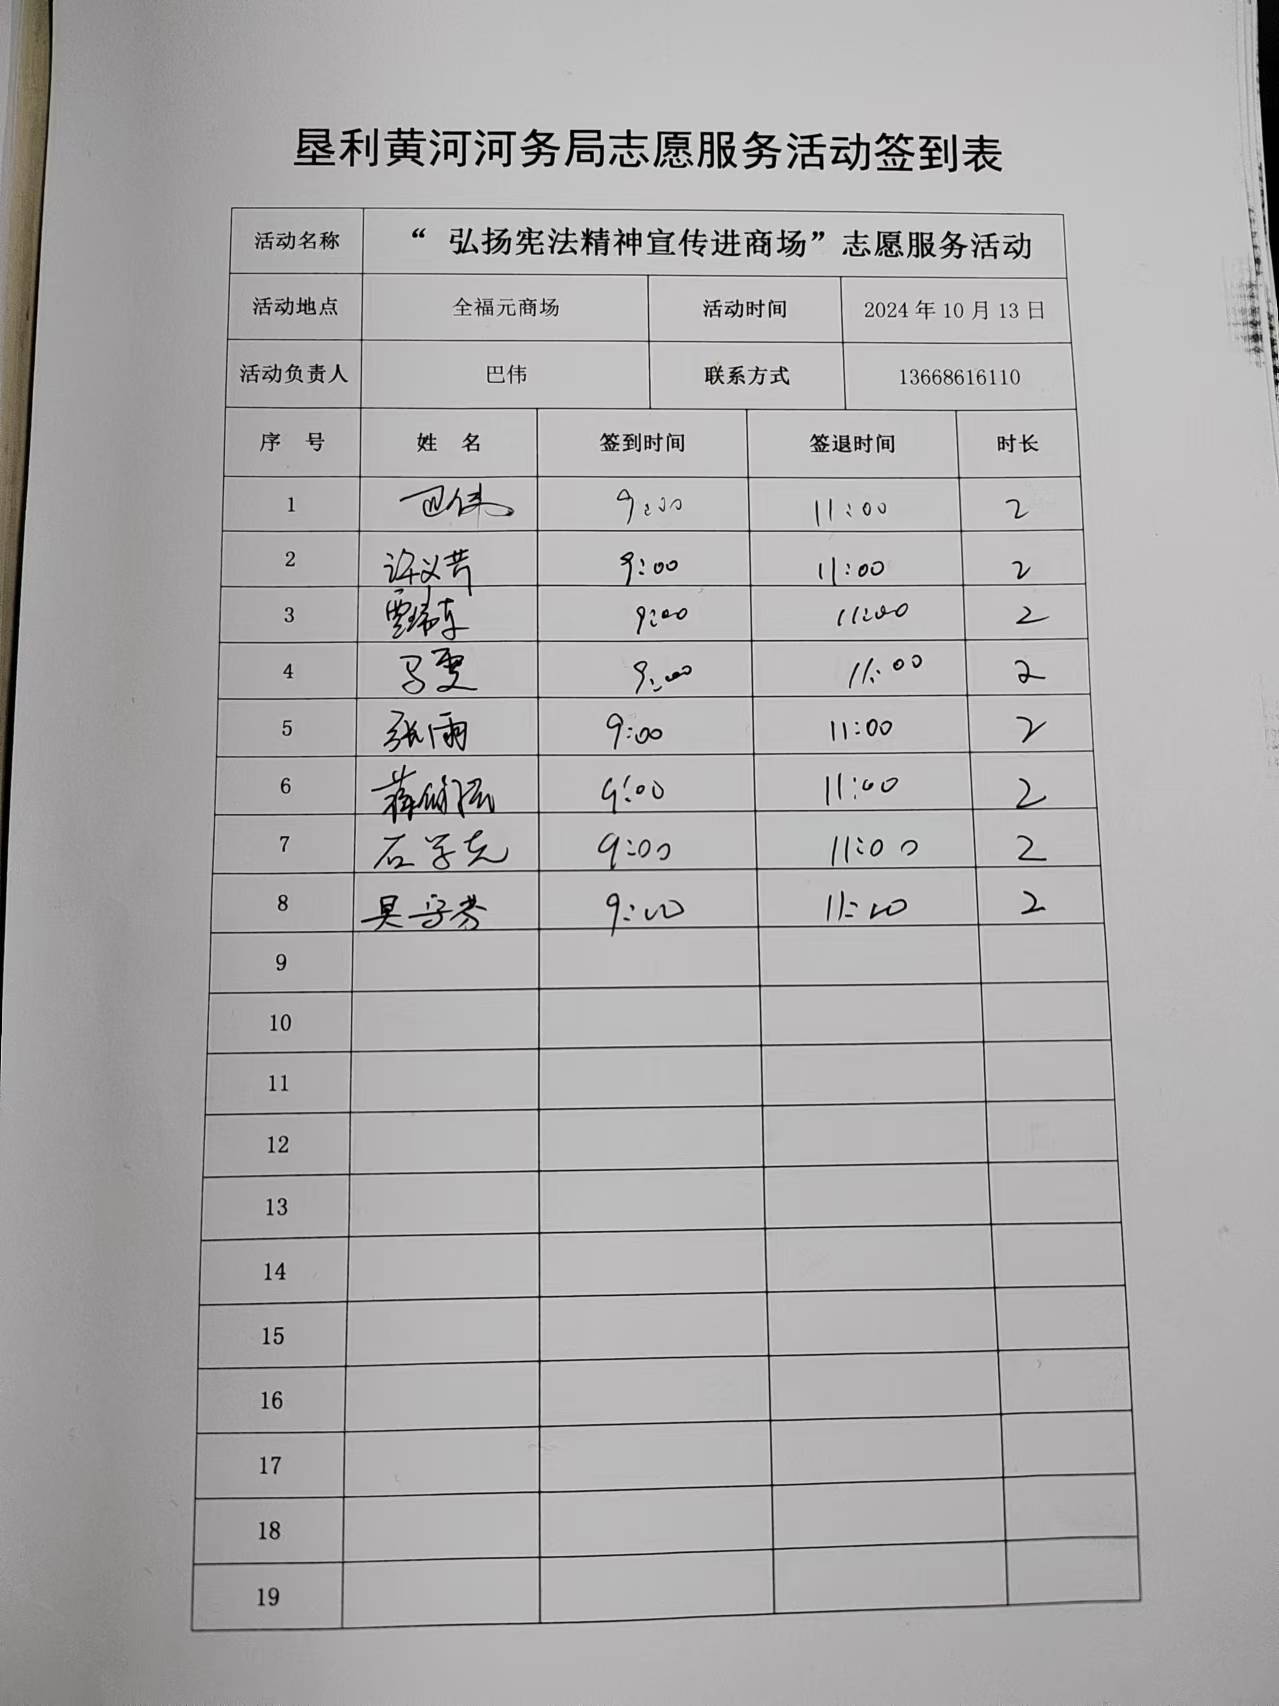 垦利黄河河务局志愿服务活动签到表
活动名称 “ 弘扬宪法精神宣传进商场”志愿服务活动
活动地点 全福元商场 活动时间 2024年10月13日
活动负责人 巴伟 联系方式 13668616110
序 号 姓 名 签到时间 签退时间 时长
1 巴伟 9:00 11:00 2
2 9:00 11:00 2
3 9:00 11:00 2
4 马雯 9:00 11:00 2
5 张雨 9:00 11:00 2
6 9:00 11:00 2
7 石学克 9:00 11:00 2
8 吴守芬 9:00 11:00 2
9
10
11
12
13
14
15
16
17
18
19